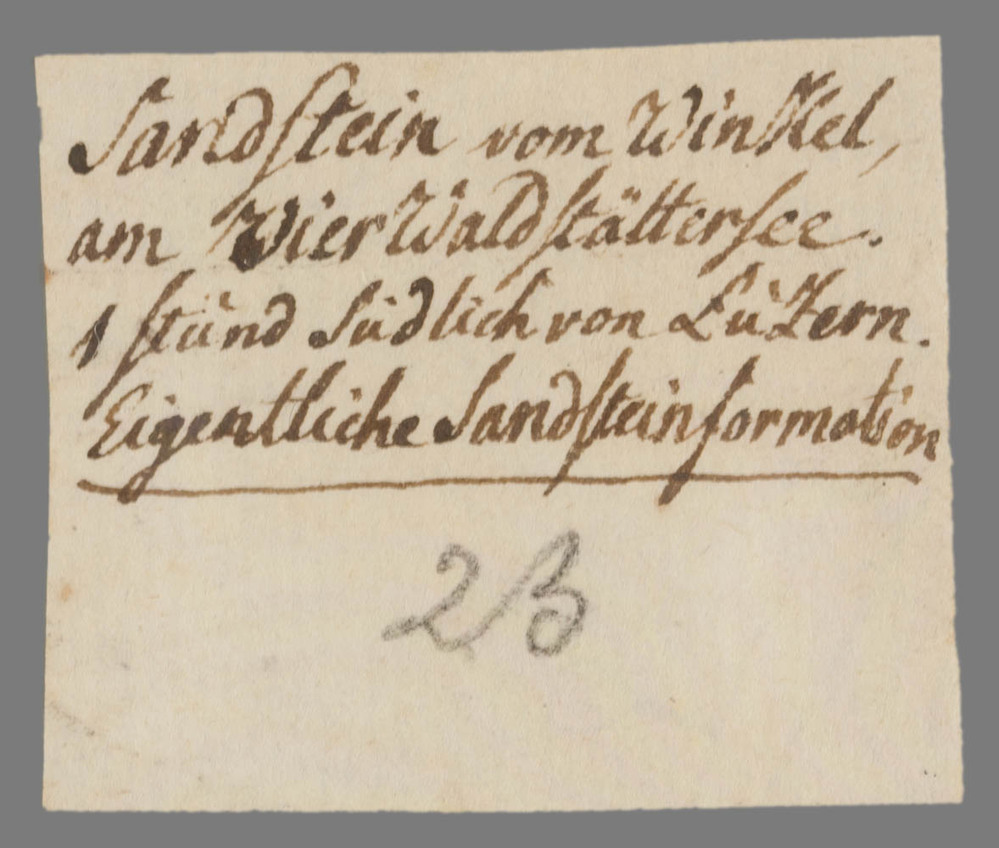 Sandstein vom Winkel,
am Vier Waldstättersee.
1 stund südlich von Luzern.
Eigentliche Sandsteinformation
2B